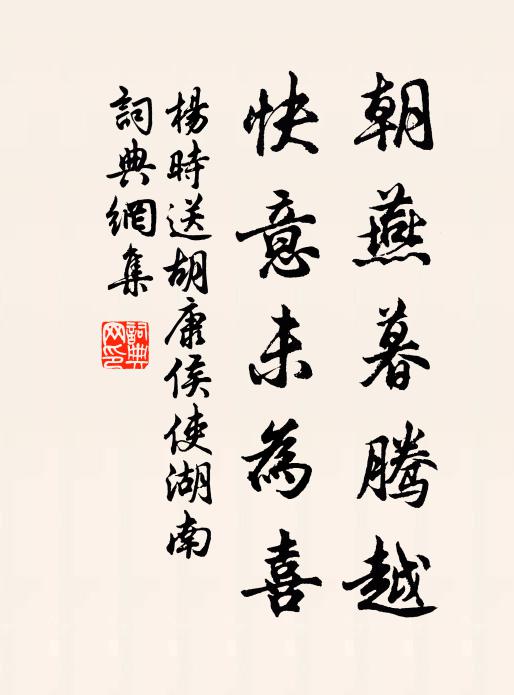 朝燕暮騰越
快意未為喜
楊時送胡康侯使湖南
詞典網集
詞典網印